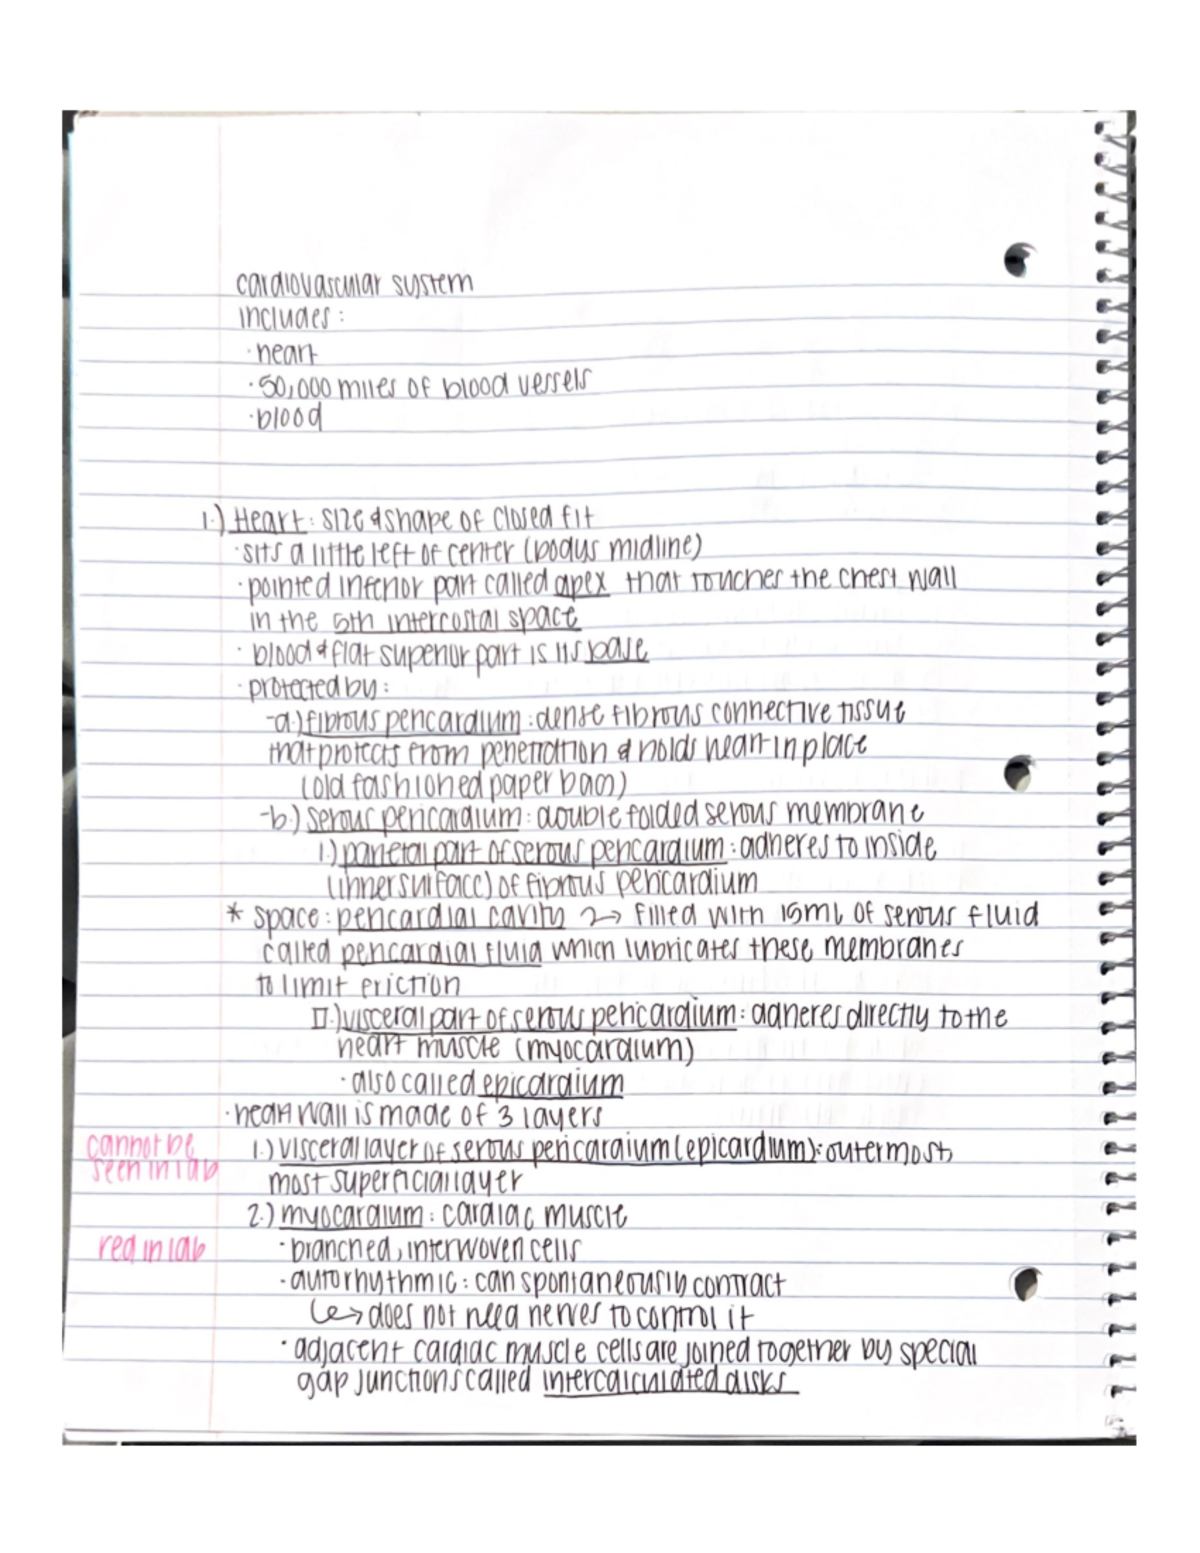 cardiovascular system
includes:
·heart
·50,000 miles of blood vessels
·blood
1.) Heart: size & shape of closed fit
·sits a little left of center (bodys midline)
·pointed inferior part called apex that touches the chest wall
in the 5th intercostal space
·blood & flat superior part is its base
·protected by:
-a.) fibrous pericardium: dense fibrous connective tissue
that protects from penetration & holds heart in place
(old fashioned paper bag)
-b.) serous pericardium: double folded serous membrane
1.) parietal part of serous pericardium: adheres to inside
(inner surface) of fibrous pericardium
* space: pericardial cavity → filled with 15mL of serous fluid
called pericardial fluid which lubricates these membranes
to limit friction
II.) visceral part of serous pericardium: adheres directly to the
heart muscle (myocardium)
·also called epicardium
·heart wall is made of 3 layers
cannot be
seen in lab
1.) visceral layer of serous pericardium (epicardium): outermost,
most superficial layer
2.) myocardium: cardiac muscle
red in lab
·branched, interwoven cells
·autorhythmic: can spontaneously contract
↳ does not need nerves to control it
·adjacent cardiac muscle cells are joined together by special
gap junctions called intercalculated disks